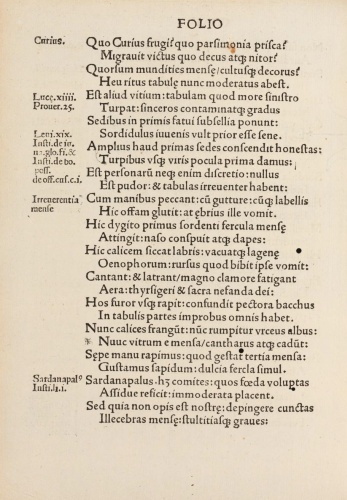 FOLIO
Curius.
Quo Curius frugi? quo parsimonia prisca?
Migrauit victus quo decus atq; nitor?
Quorsum mundities mensę/cultusq; decorus?
Heu ritus tabulę nunc moderatus abest.
Lucę.xiiii.
Est aliud vitium: tabulam quod more sinistro
Prouer.25.
Turpat: sinceros contaminatq; gradus
Sedibus in primis fatui subsellia ponunt:
Leui.xix.
Sordidulus iuuenis vult prior esse sene.
Insti.de iu.
Amplius haud primas sedes conscendit honestas:
Turpibus vsq; viris pocula prima damus:
Insti.de bo.
poss.
Est personarũ neq; enim discretio: nullus
de off.eus.c.i.
Est pudor: & tabulas irreuerter habent:
Irreuerentia
Cum manibus peccant: cũ gutture: cũq; labellis
mense
Hic offam glutit: at ębrius ille vomit.
Hic dygito primus sordenti fercula mensę
Attingit: naso conspuit atq; dapes:
Hic calicem siccat labris: vacuatq; lagenę
Oenophorum: rursus quod bibit ipse vomit:
Cantant: & latrant/magno clamore fatigant
Aera: thyrsigeri & sacra nefanda dei:
Hos furor vsq; rapit: confundit pectora bacchus
In tabulis partes improbus omnis habet.
Nunc calices frangũt: nũc rumpitur vrceus albus:
Nunc vitrum e mensa/cantharus atq; cadũt:
Sępe manu rapimus: quod gestat tertia mensa:
Gustamus sapidum: dulcia fercla simul.
Sardanapalꝰ
Sardanapalus. hꝫ comites: quos fœda voluptas
Insti.li.i.
Assidue reficit: immoderata placent.
Sed quia non opis est nostrę: depingere cunctas
Illecebras mensę: stultitiasq; graues: